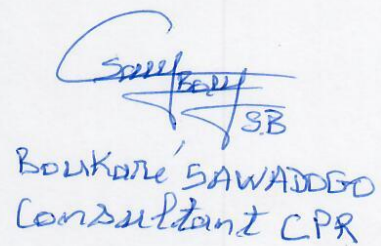 S.B
Boukaré SAWADOGO
Consultant CPR